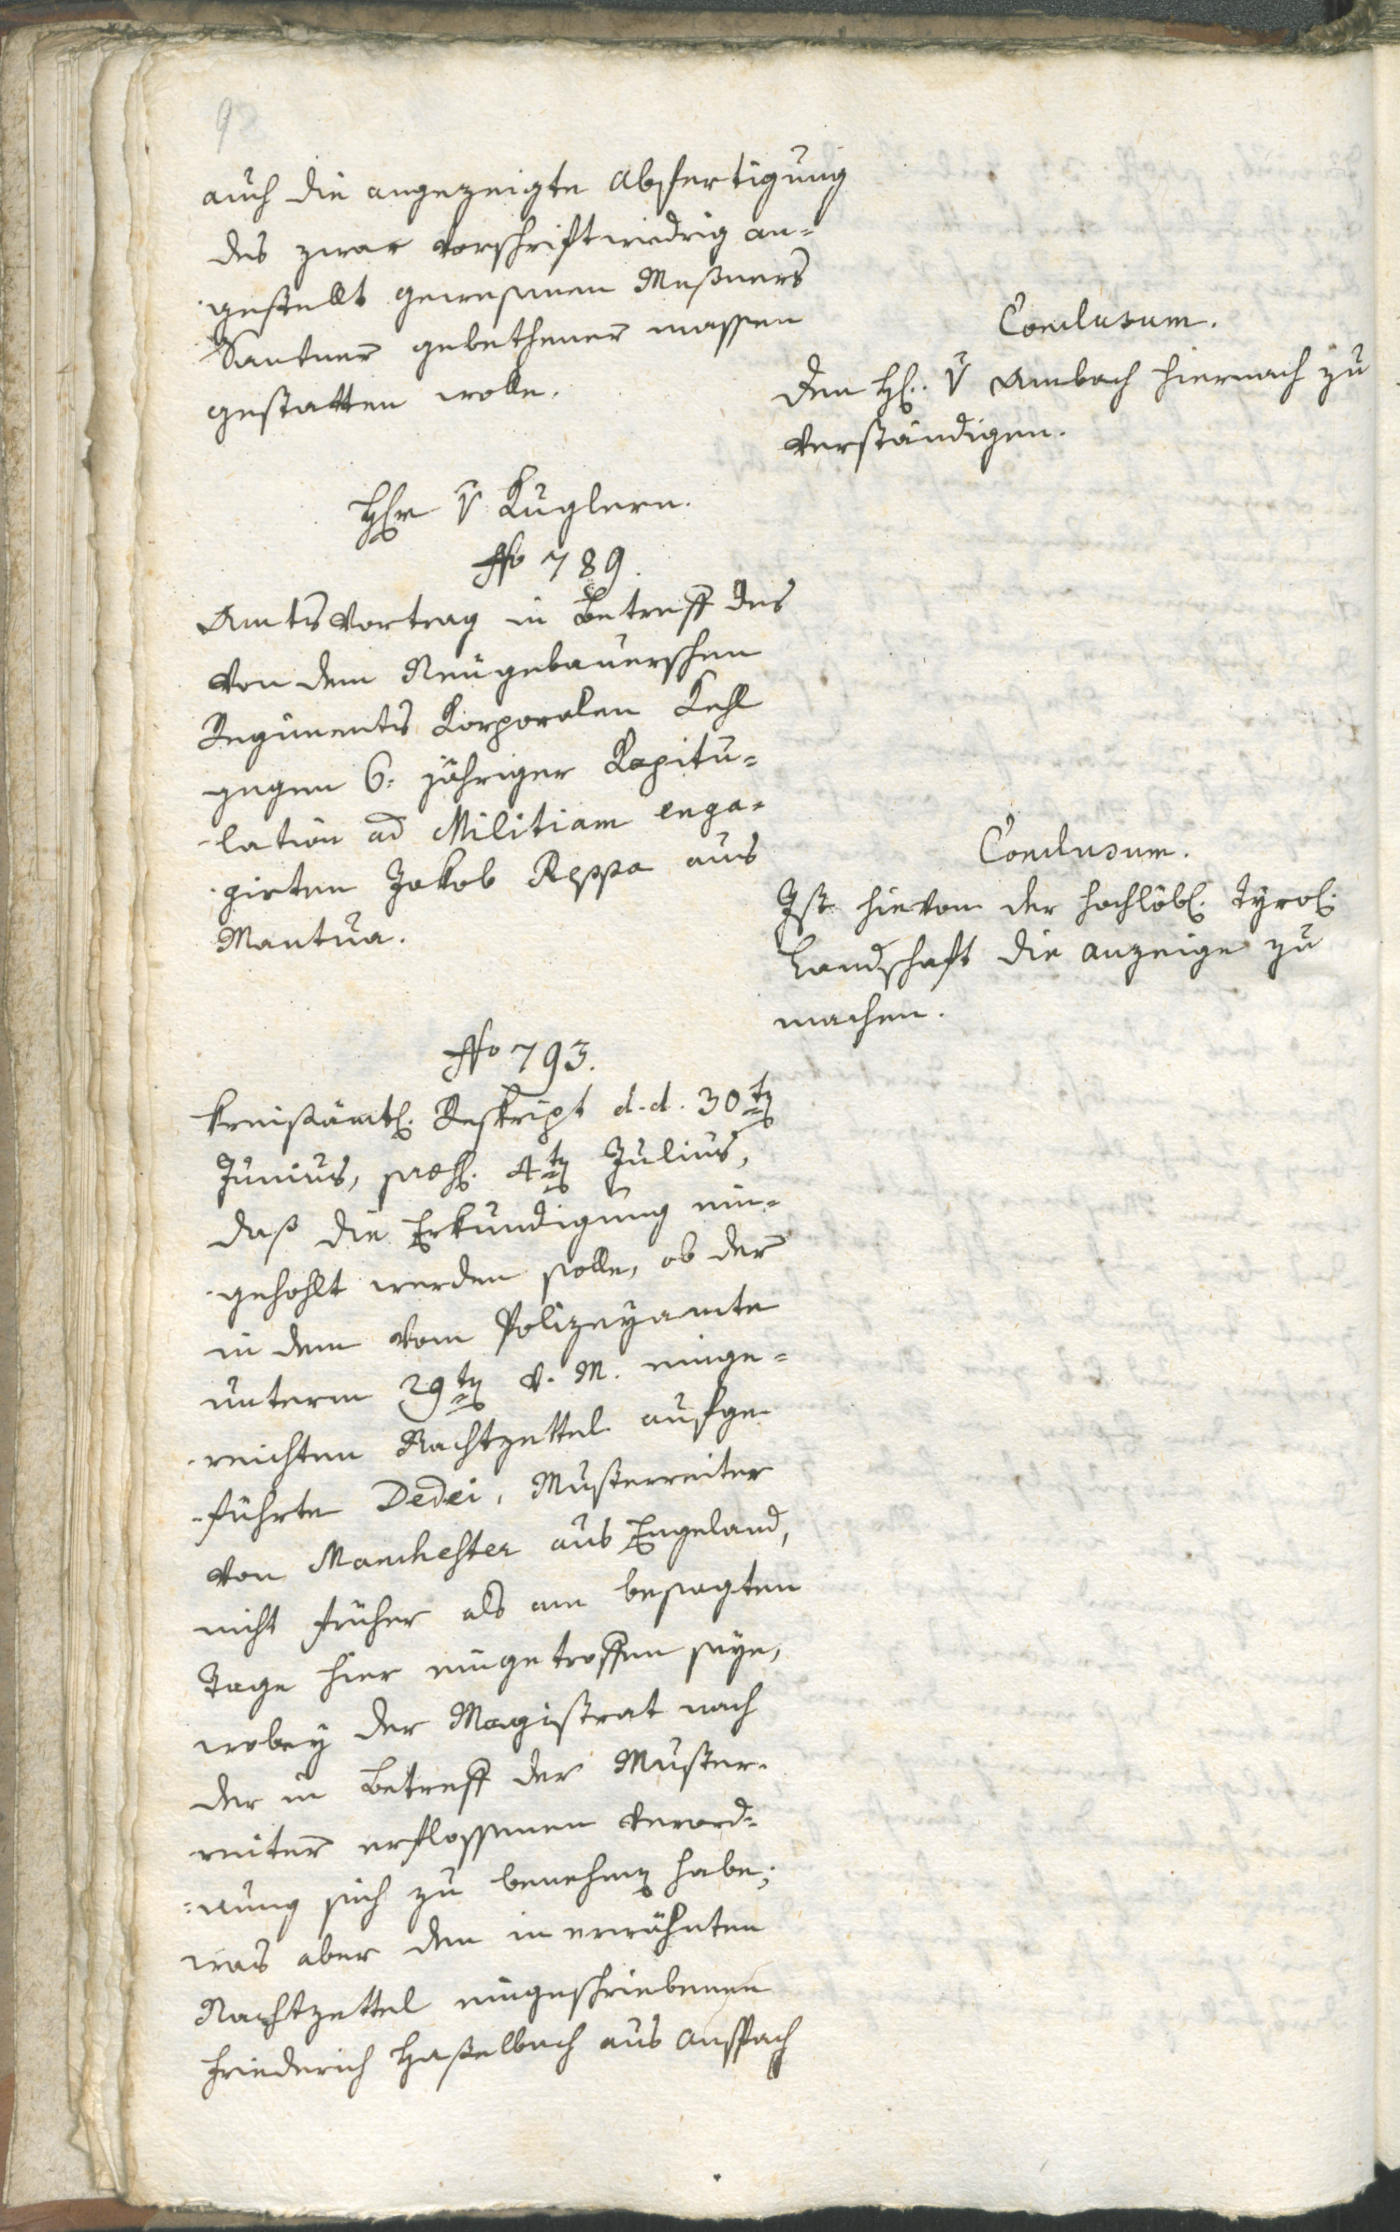 98
auch die angezeigte Abfertigung
des zwar vorschriftwiedrig an-
gestellt gewesenen Meßners
Santner gebethener massen
gestatten wolle.
Conclusum.
Den H. v Ambach hiernach zu
verständigen.
Hr v Kuglern.
No 789.
Amtsvortrag in Betreff des
von dem Neugebauerschen
Regiments Korporalen Kehl
gegen 6. jähriger Kapitu-
lation ad Militiam enga-
girten Jakob Reppa aus
Mantua.
Conclusum.
Ist hievon der hochlöbl. Tyrol.
Landschaft die anzeige zu
machen.
No 793.
Kreisämtl. Reskript d. d. 30ten
Junius, præs. 4ten Julius,
daß die Erkundigung ein-
gehohlt werden solle, ob der
in dem vom Polizeyamte
unterm 29ten v. M. einge-
reichten Nachtzettel aufge-
führte Dedei, Musterreiter
von Manchester aus Engeland,
nicht früher als am besagten
Tage hier eingetroffen seye,
wobey der Magistrat nach
der in Betreff der Muster-
reiter erflossenen Verord-
nung sich zu benehmen habe;
was aber den in erwähnten
Nachtzettel eingeschriebenen
Friederich Haßelbach aus Anspach